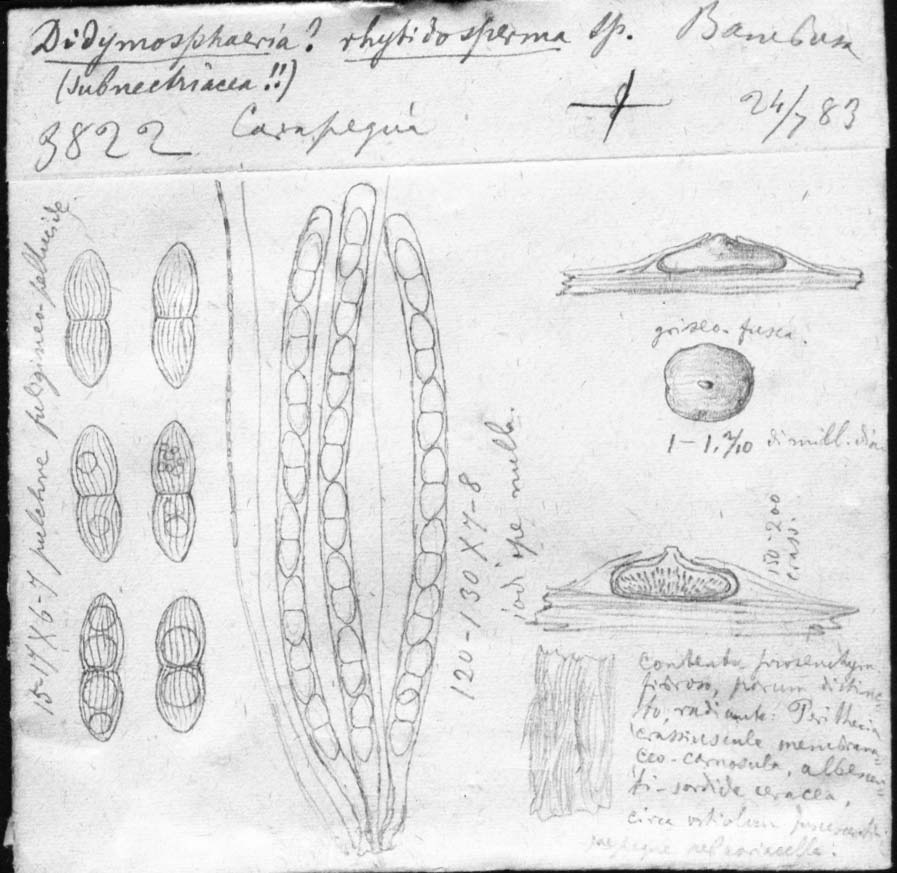 Didymosphaeria? rhytidosperma Sp. Bambusa
(subnectriacea!!)
3822 Carapegua 24/7 83
15-17X6-7 pulchre fuligineo-pellucide
120-130X7-8
iodi ope null.
griseo-fusca.
1-1,2/10 di mill. dia
150-200
crass.
Contextu prosenchym
fibroso, parum distinc-
to, radiante: Perithecia
crassiuscule membrana-
ceo-carnosula, albescen-
ti-sordida, ceracea,
circa ostiolum fuscescenti